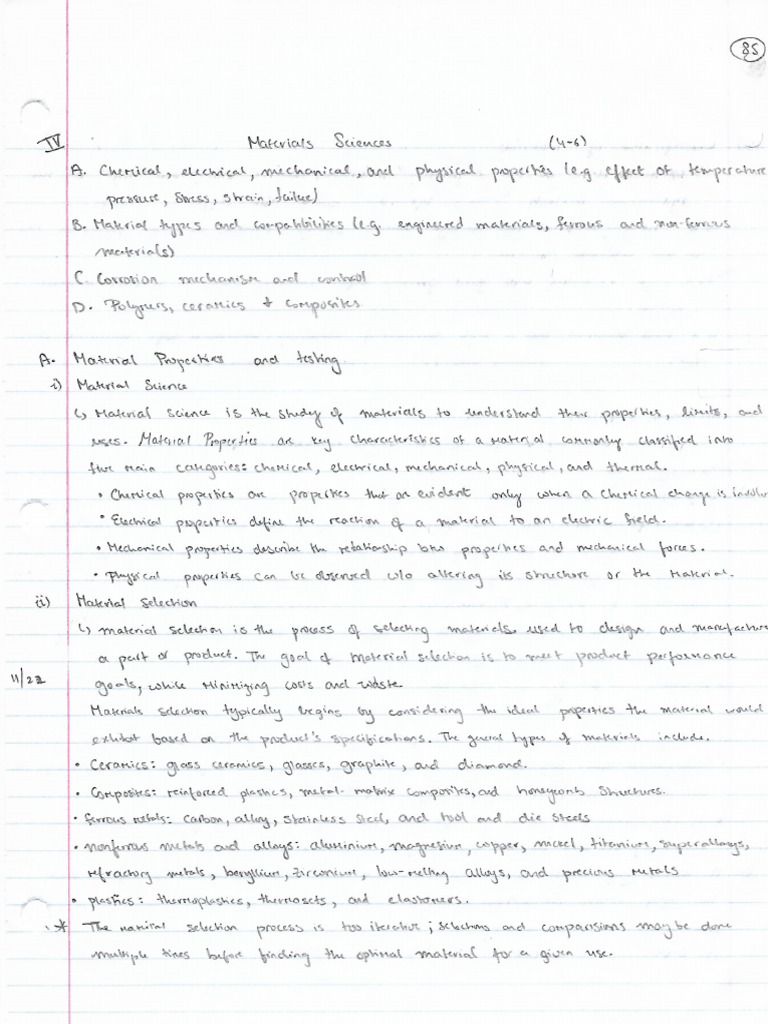 85
IV Materials Sciences (4-6)
A. Chemical, electrical, mechanical, and physical properties (e.g effect of temperature
pressure, stress, strain, failure)
B. Material types and compatibilities (e.g. engineered materials, ferrous and non-ferrous
materials)
C. Corrosion mechanism and control
D. Polymers, ceramics + composites
A. Material Properties and testing
i) Material Science
↳ Material science is the study of materials to understand their properties, limits, and
uses. Material Properties are key characteristics of a material commonly classified into
five main categories: chemical, electrical, mechanical, physical, and thermal.
• Chemical properties are properties that are evident only when a chemical change is involv
• Electrical properties define the reaction of a material to an electric field.
• Mechanical properties describe the relationship btw properties and mechanical forces.
• Physical properties can be observed w/o altering its structure or the material.
ii) Material Selection
↳ material selection is the process of selecting materials used to design and manufacture
a part or product. The goal of material selection is to meet product performance
11/22 goals, while minimizing costs and waste.
Materials selection typically begins by considering the ideal properties the material would
exhibit based on the product's specifications. The general types of materials include.
• Ceramics: glass ceramics, glasses, graphite, and diamond.
• Composites: reinforced plastics, metal-matrix composites, and honeycomb structures.
• ferrous metals: carbon, alloy, stainless steel, and tool and die steels
• nonferrous metals and alloys: aluminium, magnesium, copper, nickel, titanium, superalloys,
refractory metals, beryllium, zirconium, low-melting alloys, and precious metals
• plastics: thermoplastics, thermosets, and elastomers.
* The material selection process is too iterative; selections and comparisions may be done
multiple times before finding the optimal material for a given use.